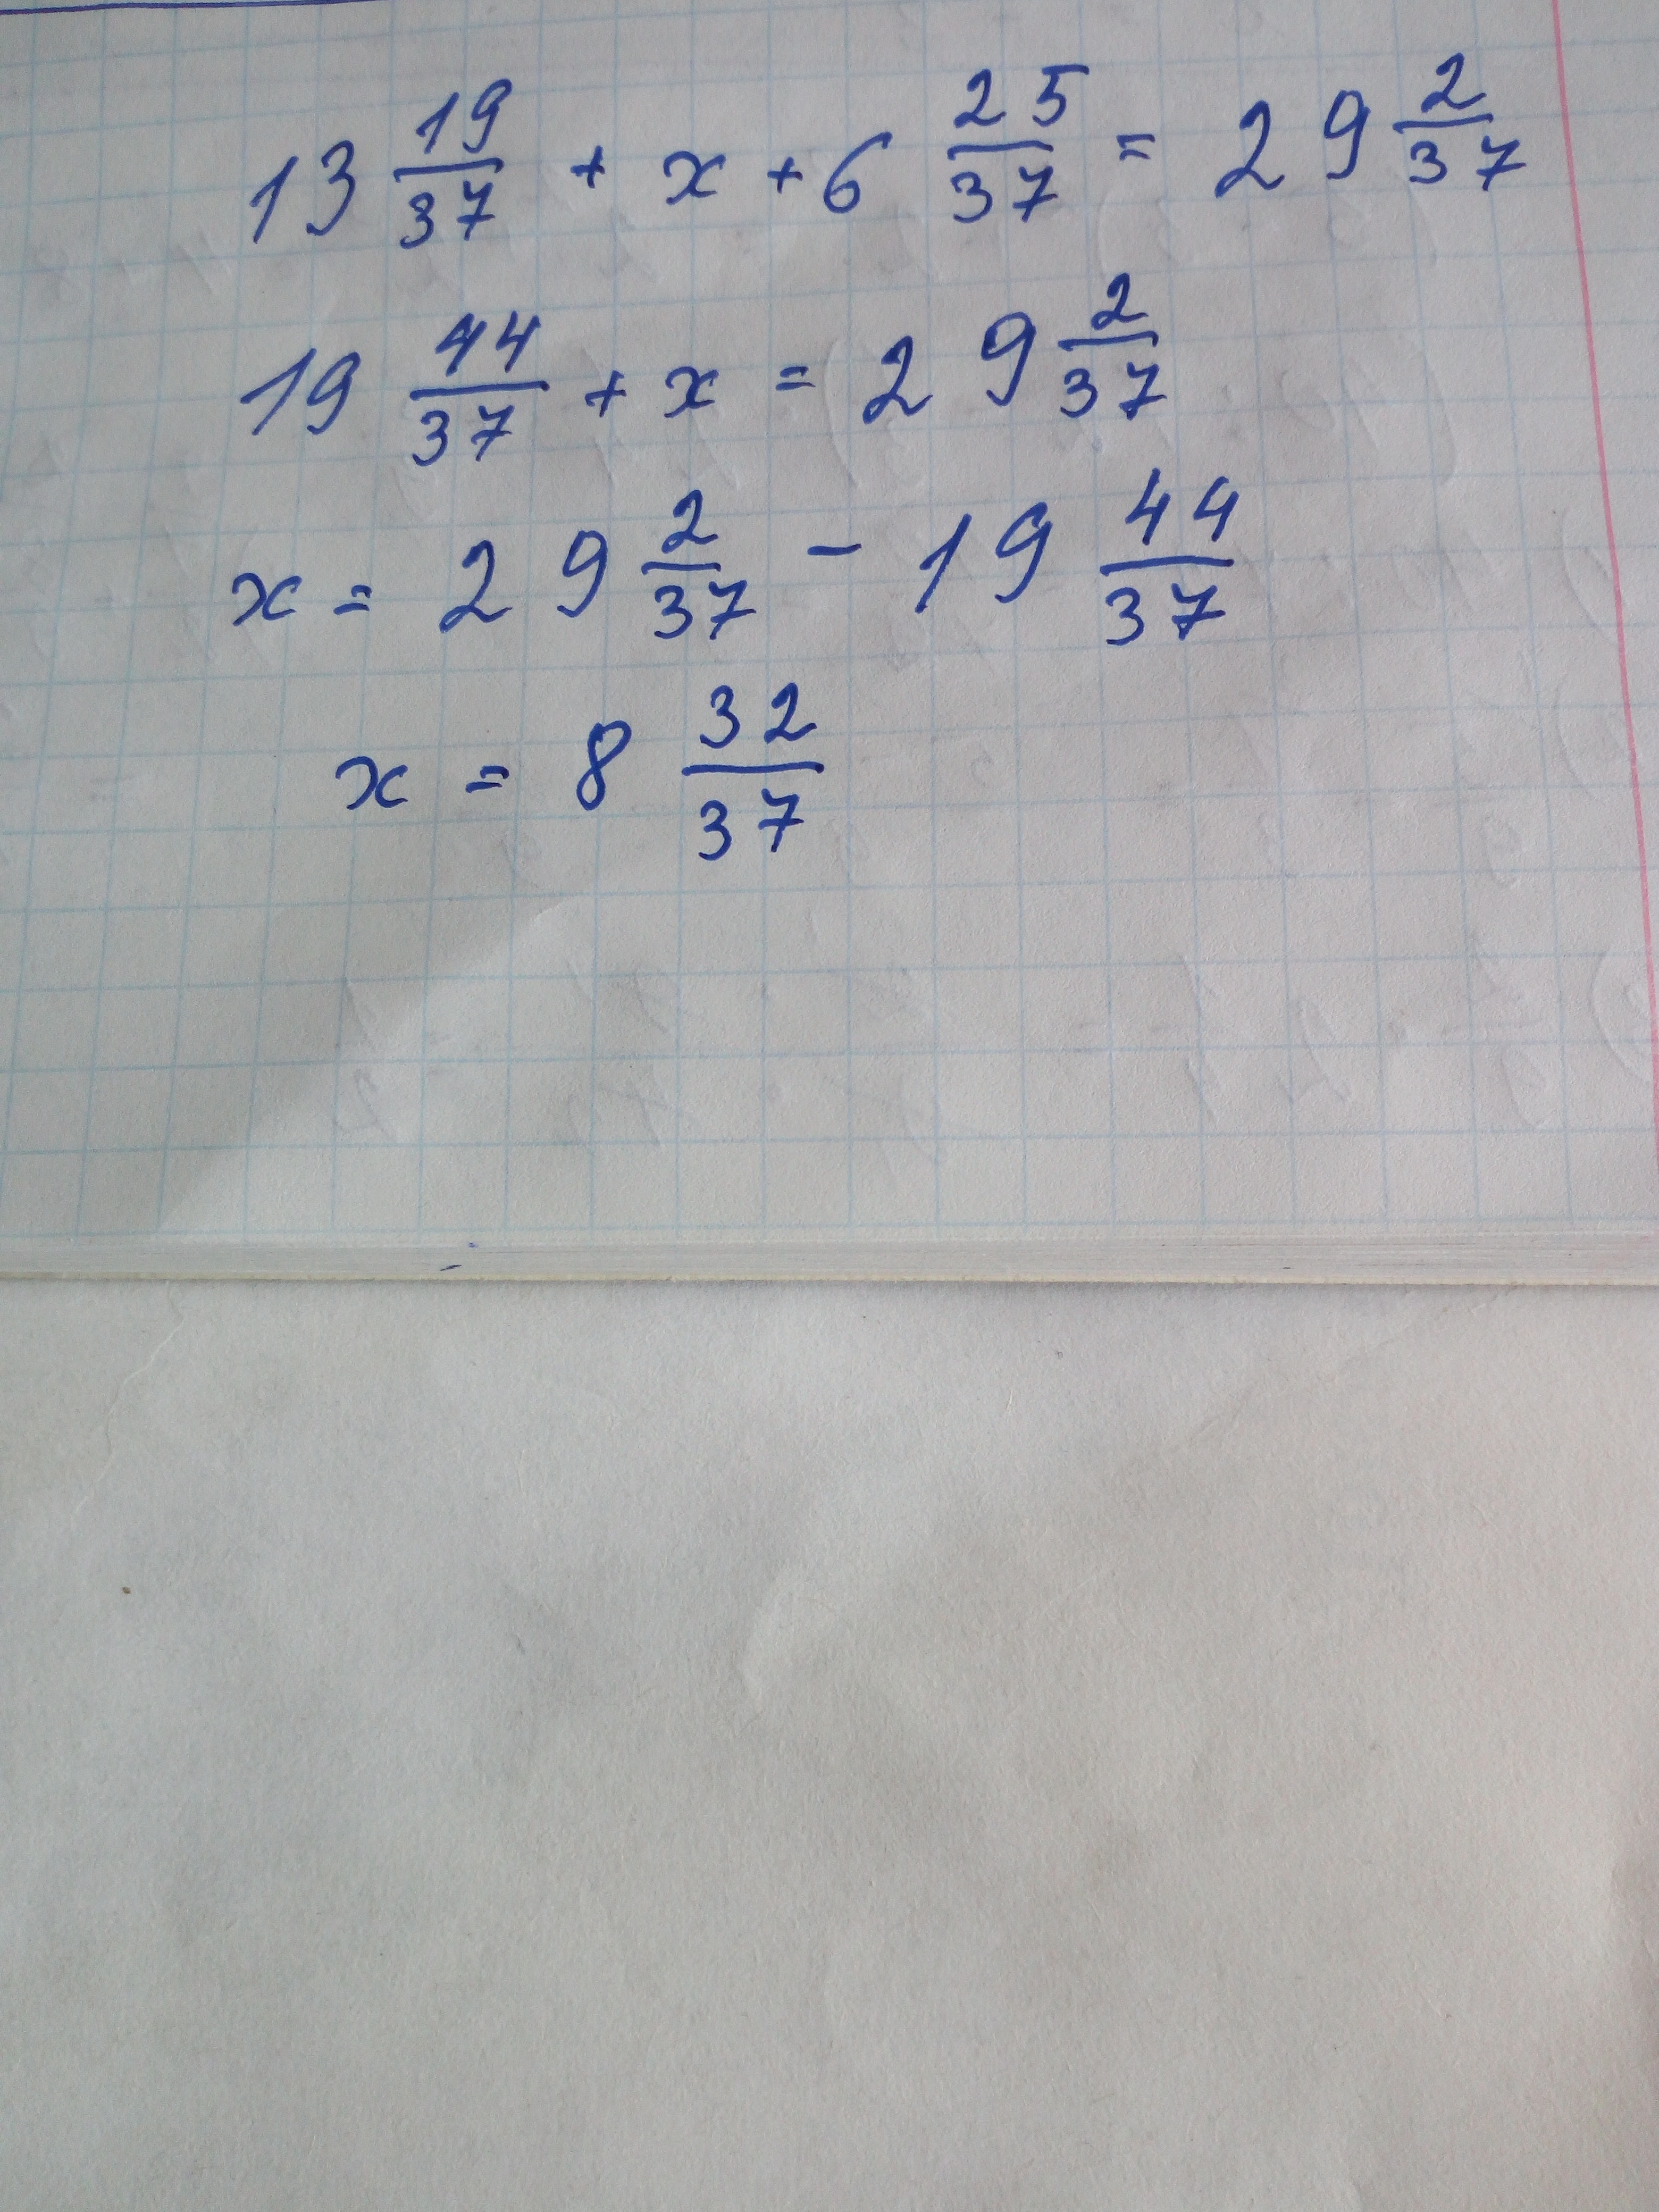 13 19/37 + x + 6 25/37 = 29 2/37
19 44/37 + x = 29 2/37
x = 29 2/37 - 19 44/37
x = 8 32/37